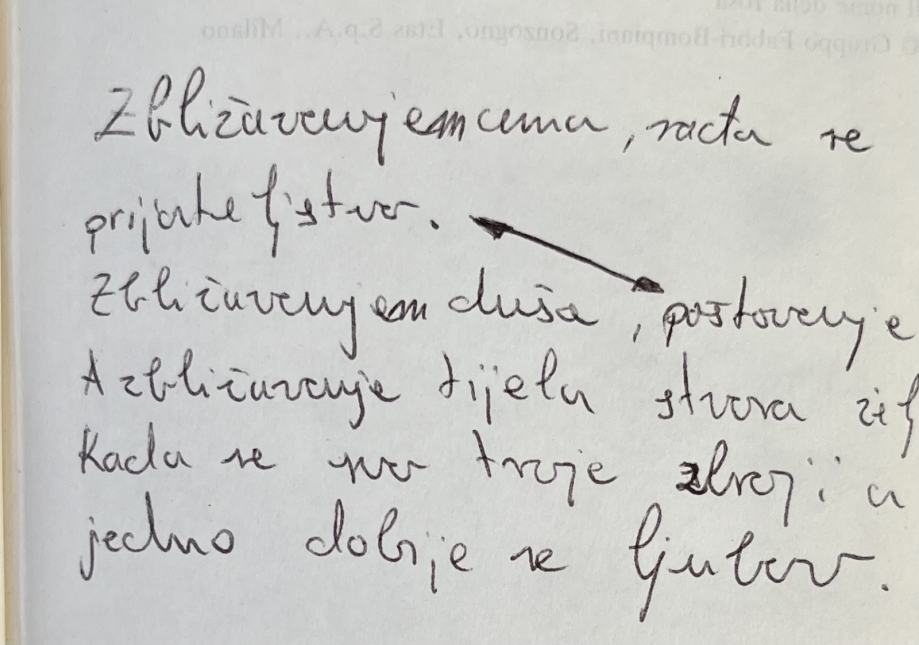 nome della rosa
© Gruppo Fabbri-Bompiani, Sonzogno, Etas S.p.A., Milano
Zbližavanjem uma, rađa se
prijateljstvo.
Zbližavanjem duša, poštovanje
A zbližavanje tijela stvara
Kada se troje zbroji u
jedno dobije se ljubav.